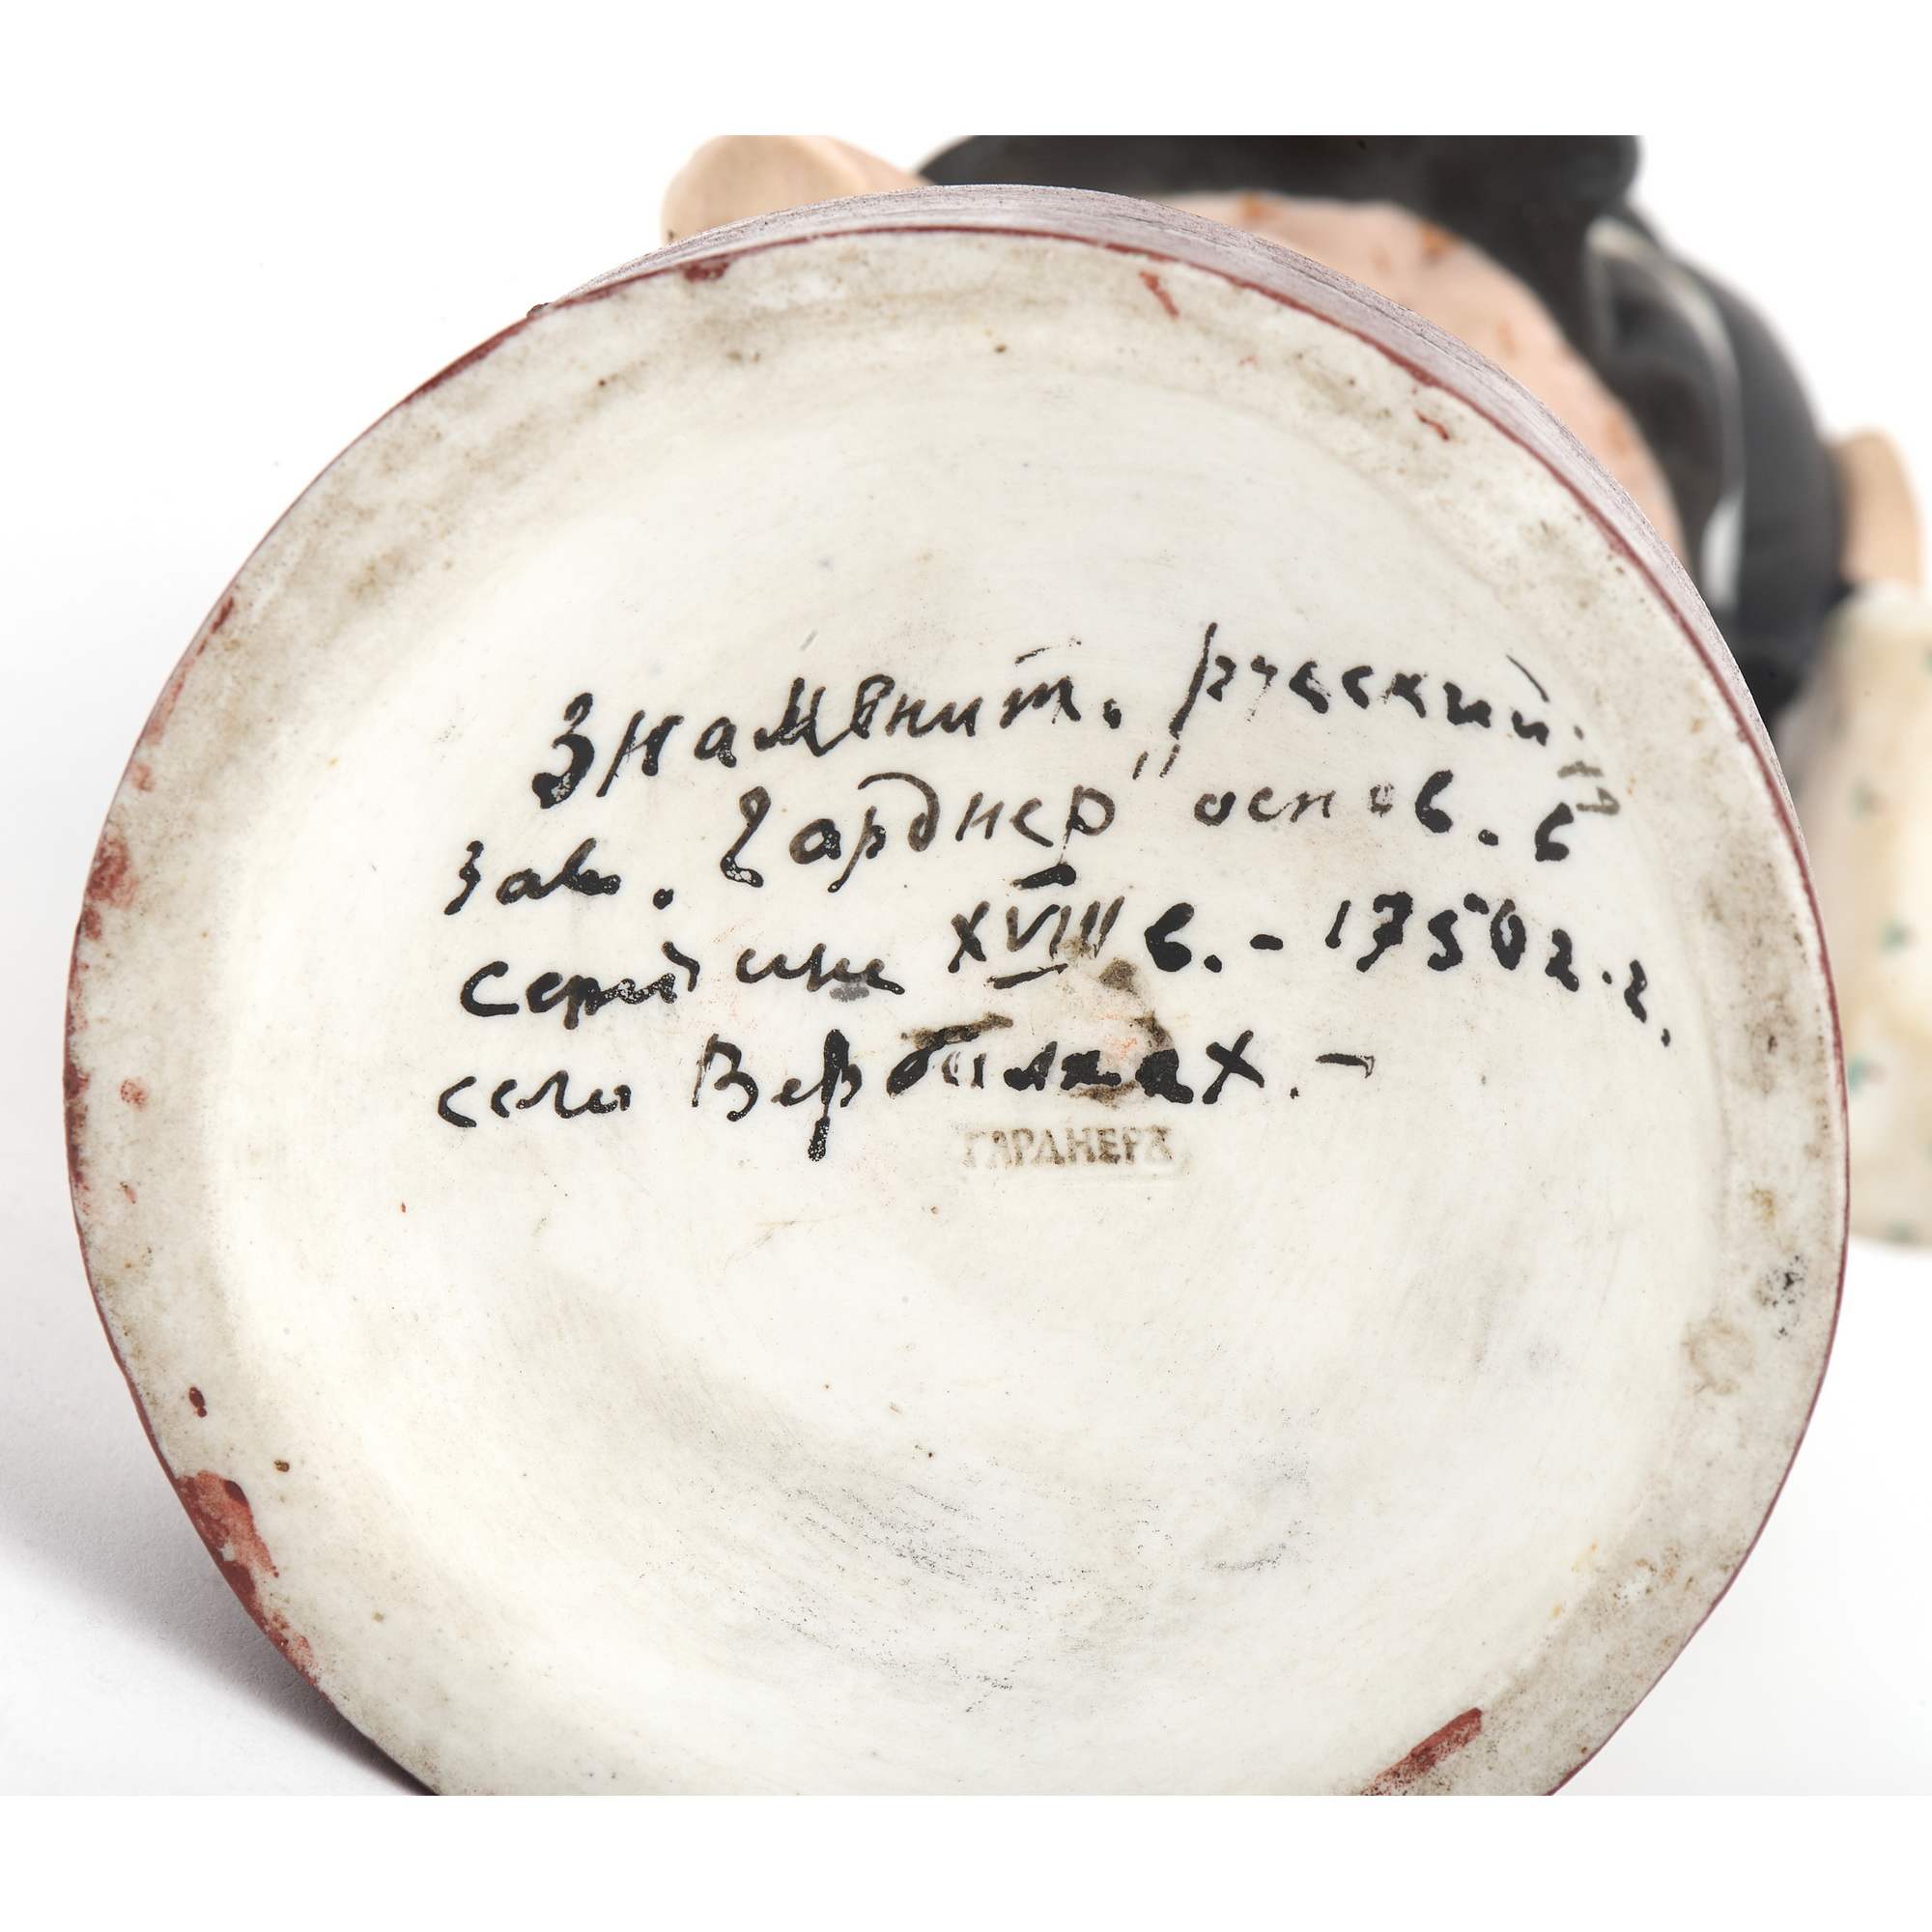 Знаменит. русский
зав. "Гарднер" основ. в
середине XVIII в. - 1750 г.г.
село Вербилках. -
ГАРДНЕРЪ